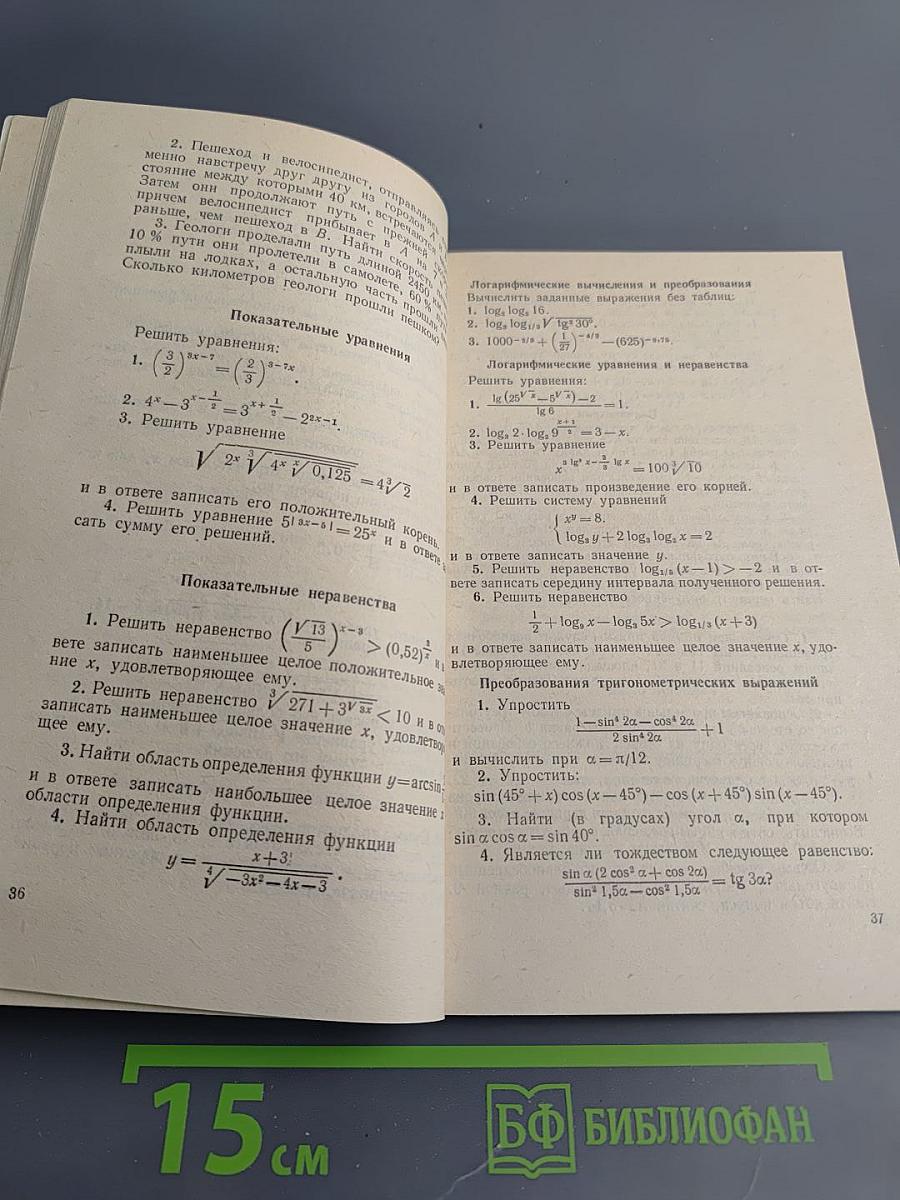 2. Пешеход и велосипедист, отправляясь
менно навстречу друг другу из городов
стояние между которыми 40 км, встречаются
Затем они продолжают путь с прежней
причем велосипедист прибывает в A на 7
раньше, чем пешеход в B. Найти скорость
3. Геологи проделали путь длиной 2450 км
10 % пути они пролетели в самолете, 60 %
плыли на лодках, а остальную часть прошли
Сколько километров геологи прошли пешком?
Показательные уравнения
Решить уравнения:
1. (3/2)^{3x−7} = (2/3)^{3−7x}.
2. 4^x − 3^{x−1/2} = 3^{x+1/2} − 2^{2x−1}.
3. Решить уравнение
√(2^x ∛(4^x ˣ√0,125)) = 4∛2
и в ответе записать его положительный корень.
4. Решить уравнение 5^{|3x−5|} = 25^x и в ответе
сать сумму его решений.
Показательные неравенства
1. Решить неравенство (√13/5)^{x−3} >(0,52)
вете записать наименьшее целое положительное
ние x, удовлетворяющее ему.
2. Решить неравенство ∛(271+3^{√3x}) < 10 и в
записать наименьшее целое значение x,
щее ему.
3. Найти область определения функции y=arcsin
и в ответе записать наибольшее целое значение
области определения функции.
4. Найти область определения функции
y = (x+3)/⁴√(−3x²−4x−3).
36
Логарифмические вычисления и преобразования
Вычислить заданные выражения без таблиц:
1. log₂ 16.
2. log₃ log₁/₃ √ tg² 30°.
3. 1000 + (1/27) − (625)^{−0,75}.
Логарифмические уравнения и неравенства
Решить уравнения:
1. (lg (25^{√x} − 5^{√x}) − 2)/lg 6 = 1.
2. log₃ 2·log₂ 9^{(x+1)/2} = 3 − x.
3. Решить уравнение
x^{3 lg³ x − 2/3 lg x} = 100∛10
и в ответе записать произведение его корней.
4. Решить систему уравнений
{ x^y = 8.
log₃ y + 2 log₃ log₂ x = 2
и в ответе записать значение y.
5. Решить неравенство log₁/₅ (x − 1) > − 2 и в от-
вете записать середину интервала полученного решения.
6. Решить неравенство
1/2 + log₉ x − log₃ 5x > log₁/₃ (x + 3)
и в ответе записать наименьшее целое значение x, удо-
влетворяющее ему.
Преобразования тригонометрических выражений
1. Упростить
(1 − sin⁴ 2α − cos⁴ 2α)/(2 sin⁴ 2α) + 1
и вычислить при α = π/12.
2. Упростить:
sin (45° + x) cos (x − 45°) − cos (x + 45°) sin (x − 45°).
3. Найти (в градусах) угол α, при котором
sin α cos α = sin 40°.
4. Является ли тождеством следующее равенство:
(sin α (2 cos² α + cos 2α))/(sin² 1,5α − cos² 1,5α) = tg 3α?
37
15 см
БФ БИБЛИОФАН